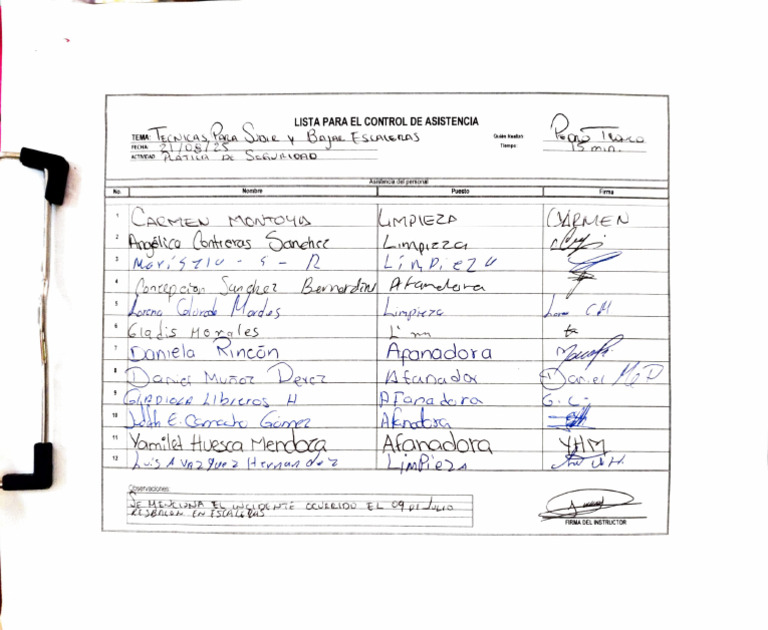 LISTA PARA EL CONTROL DE ASISTENCIA
TEMA: TECNICAS PARA SUBIR Y BAJAR ESCALERAS Quién Realizó: PEDRO
FECHA: 21/08/25 Tiempo: 15 min.
ACTIVIDAD: PLATICA DE SEGURIDAD
Asistencia del personal
No. Nombre Puesto Firma
1 CARMEN MONTOYA LIMPIEZA CARMEN
2 Angélica Contreras Sanchez Limpieza
3 LimPiEzU
4 Concepcion Sanchez Bernardino Afanadora
5 Lorena Colorado Limpieza CM
6 Gladis Morales
7 Daniela Rincón Afanadora
8 Daniel Muñoz Perez Afanador Daniel M P
9 Libreros H AFanadora G. L.
10 E. Camacho Gómez Afanadora
11 Yamilet Huesca Mendoza Afanadora YHM
12 Luis A Vazquez Hernandez LimPiEzA
Observaciones:
SE MENCIONA EL INCIDENTE OCURRIDO EL 09 DE JULIO
RESBALON EN ESCALERAS
FIRMA DEL INSTRUCTOR